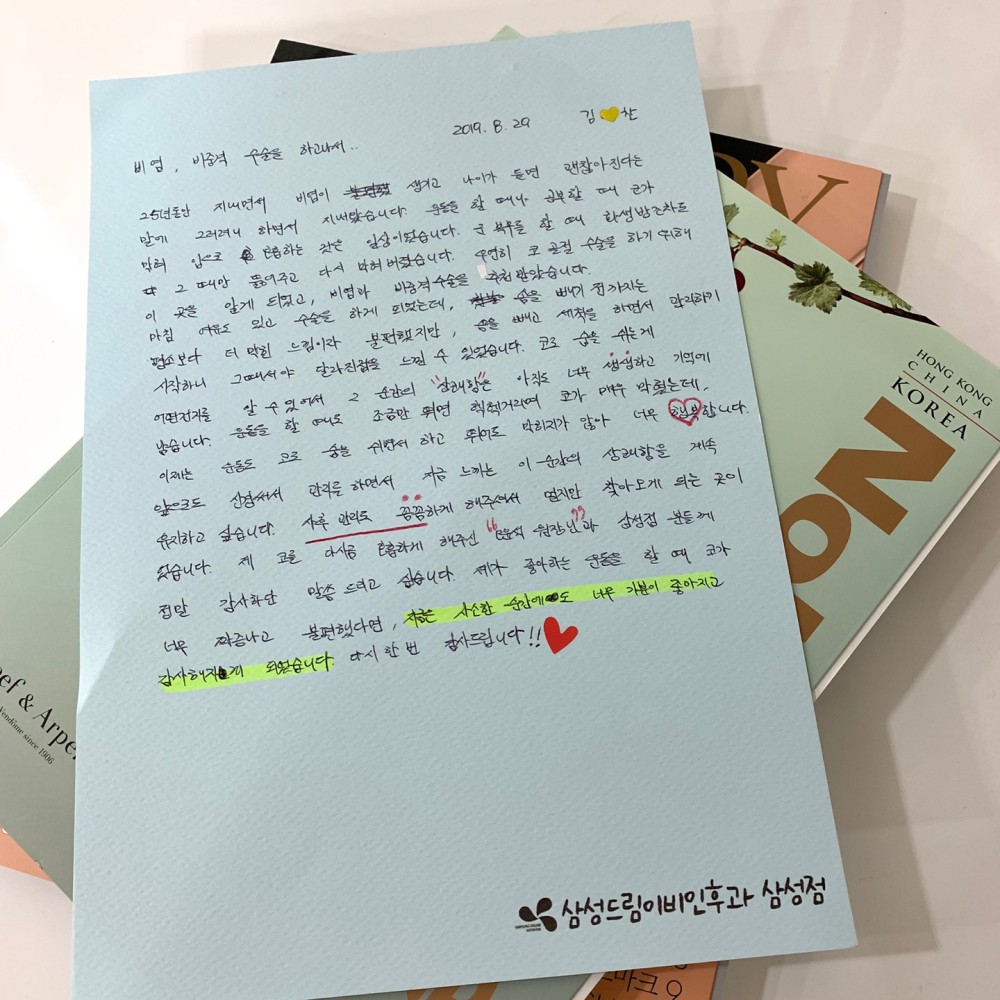 2019. 8. 29 김 찬
비염, 비중격 수술을 하고나서..
25년동안 지내면서 비염이 생기고 나이가 들면 괜찮아진다는
말에 그러려니 하면서 지내왔습니다. 운동을 할 때나 공부할 때 코가
막혀 입으로 호흡하는 것은 일상이었습니다. 군 복무를 할 때 위생방조차도
딱 그 때만 뚫어주고 다시 막혀 버렸습니다. 우연히 코 골절 수술을 하기 위해
이 곳을 알게 되었고, 비염과 비중격수술을 추천 받았습니다.
마침 여유도 있고 수술을 하게 되었는데, 솜을 빼기 전까지는
평소보다 더 막힌 느낌이라 불편했지만, 솜을 빼고 세척을 하면서 관리하기
시작하니 그때서야 달라진점을 느낄 수 있었습니다. 코로 숨을 쉬는게
어떤건지를 알 수 있어서 그 순간의 "상쾌함"은 아직도 너무 생생하고 기억에
남습니다. 운동을 할 때도 조금만 뛰면 헉헉거리며 코가 매우 막혔는데,
이제는 운동도 코로 숨을 쉬면서 하고 뛰어도 막히지가 않아 너무 행복합니다.
앞으로도 신경써서 관리를 하면서 지금 느끼는 이 순간의 상쾌함을 계속
유지하고 싶습니다. 사후 관리도 꼼꼼하게 해주셔서 멀지만 찾아오게 되는 곳이
었습니다. 제 코를 다시금 호흡하게 해주신 " 원장님"과 삼성점 분들께
정말 감사하단 말씀 드리고 싶습니다. 제가 좋아하는 운동을 할 때 코가
너무 짜증나고 불편했다면, 지금은 사소한 순간에도 너무 기분이 좋아지고
감사해지게 되었습니다. 다시 한 번 감사드립니다!!
삼성드림이비인후과 삼성점
HONG KONG
CHINA
KOREA
ef & Arpe
Vendôme since 1906
마크 9